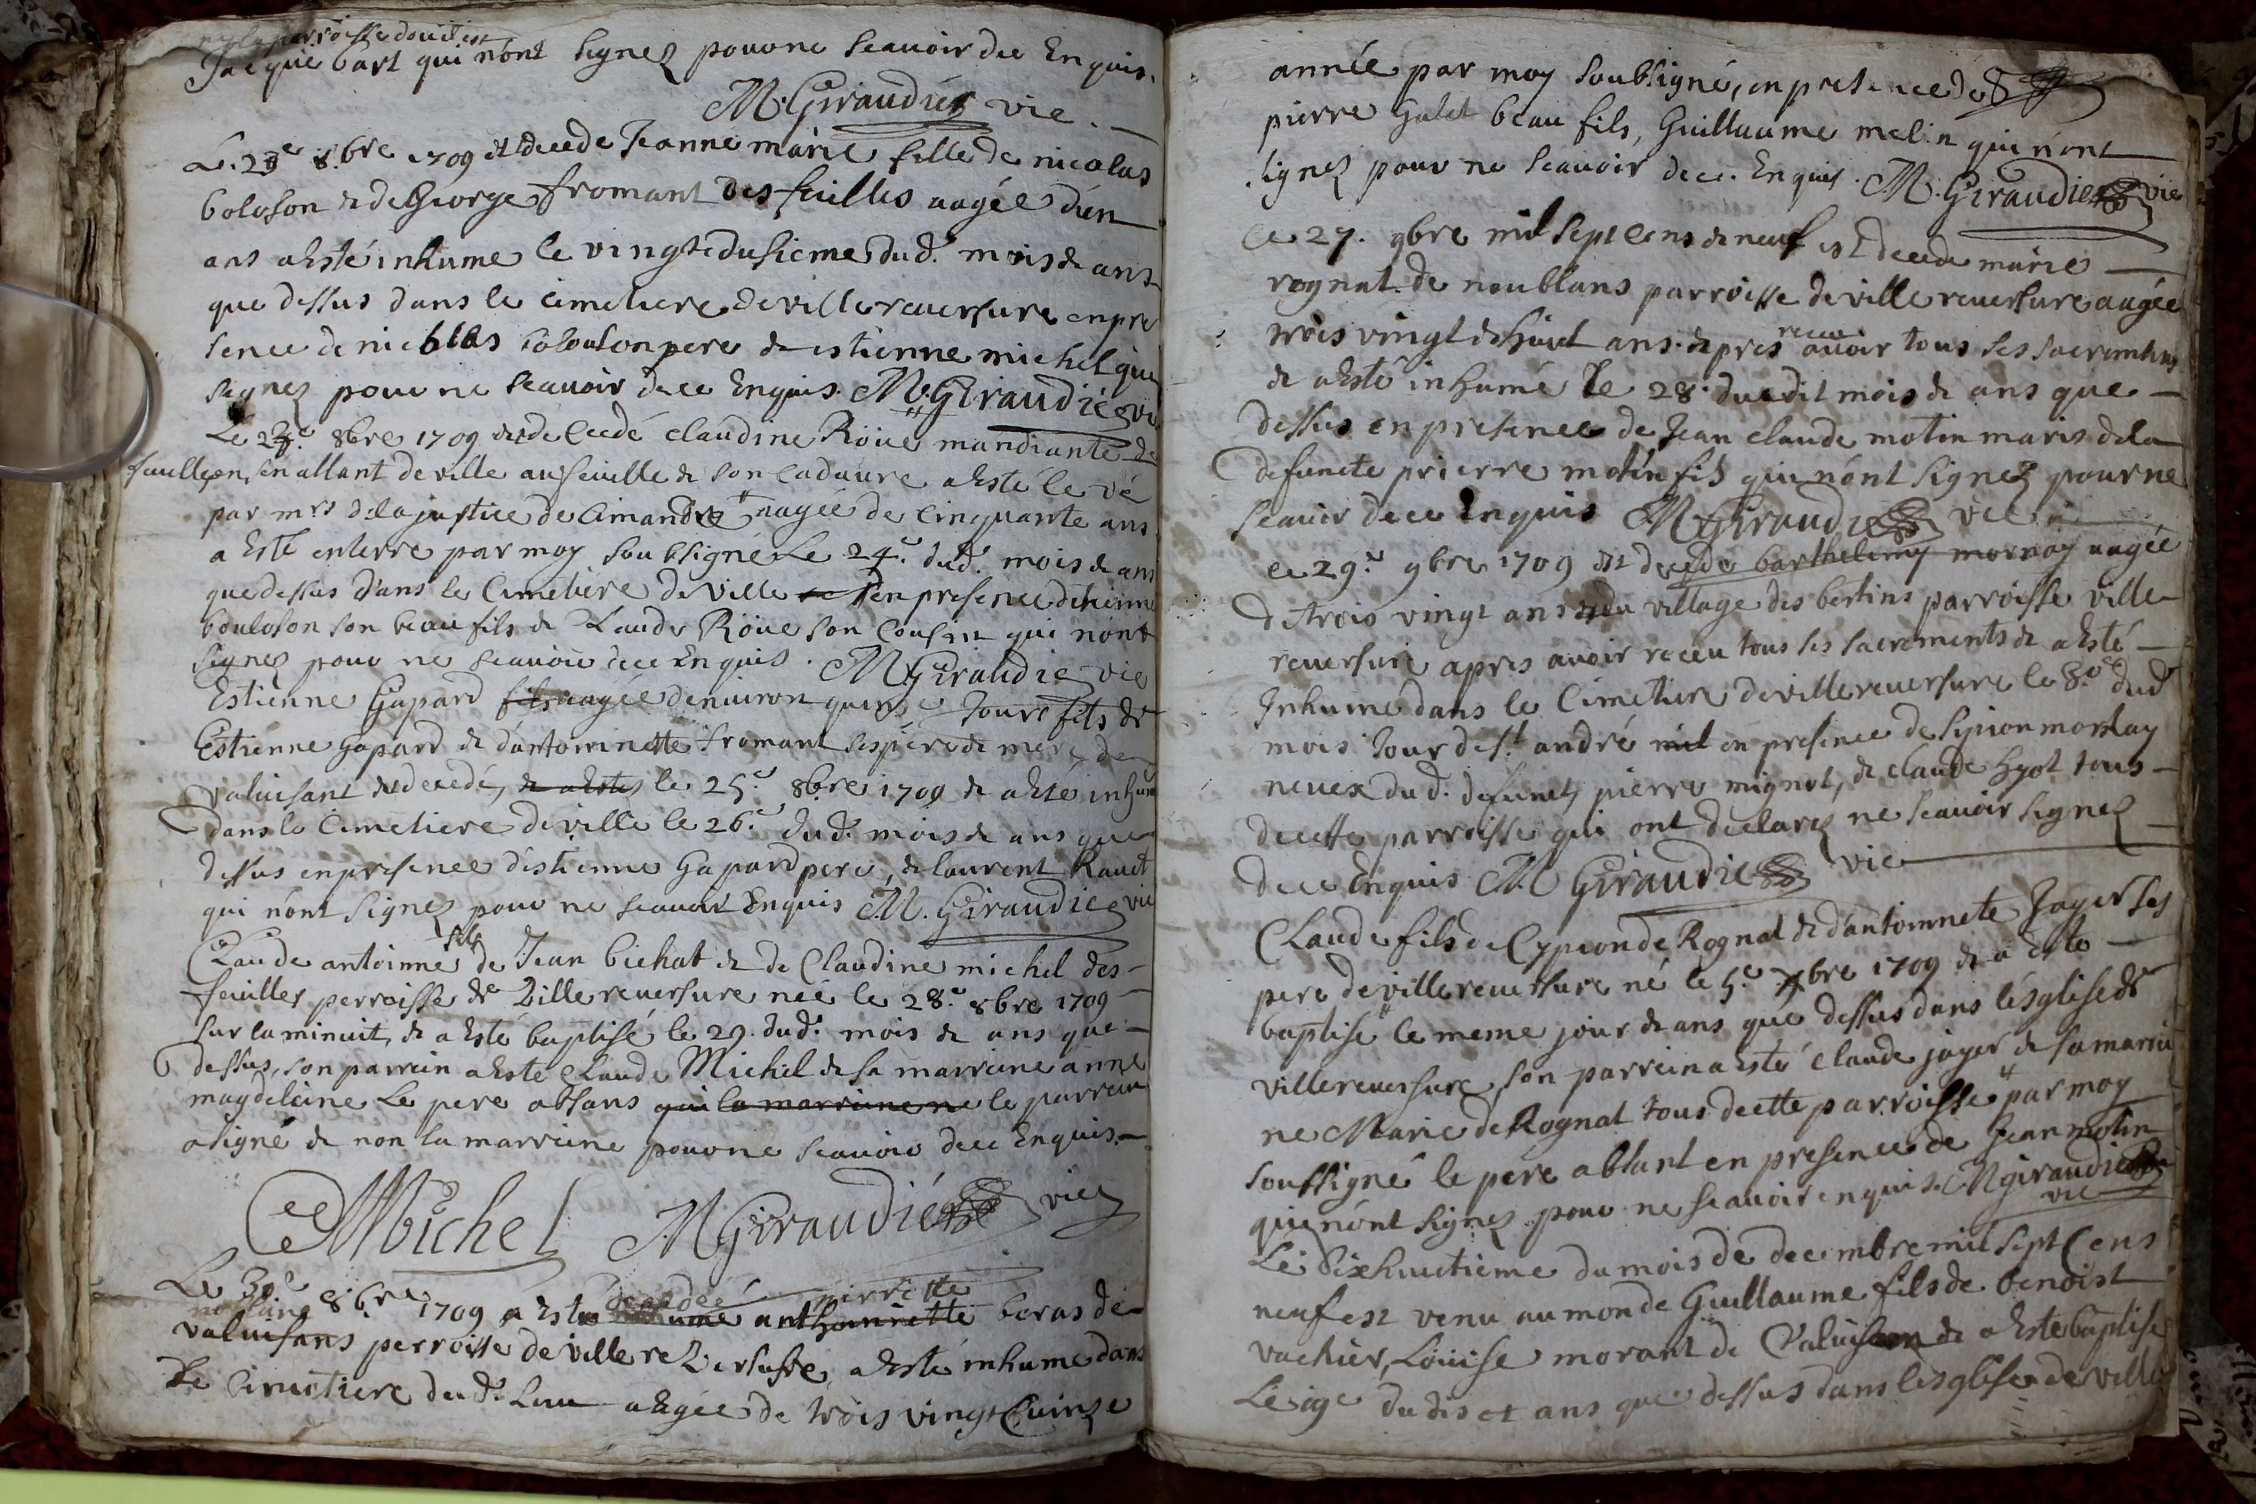 Jacque bart qui n'ont signez pouvne scauoir dee Enquis.
M. Giraudié vic.
Le. 23e 8bre 1709 est decede Jeanne marie fille de nicolas
boloson & de George fromant des fuilles aagée d'un
ans a Esté inhumé le vingt dusieme dud. mois & ans
que dessus dans le cimetiere de villereuersure en pre
sence de nicolas bolosonpere & estienne michel qui
signez pour ne scauoir dece Enquis. M. Giraudié vic
Le 23e 8bre 1709 est decedé claudine Röüe mandiante de
fuille, en s'en allant de ville au feuille & son cadaure a Esté levé
par mrs de la justice de Cimandre aagée de cinquante ans
a Esté enterre par moy soubsigné Le 24e dud. mois & ans
que dessus dans le Cimetiere de ville en presence d'etienne
bouloson son beau fils & Laude Röüe son Cousin qui n'ont
signez pour ne scauoir dece Enquis. M Giraudié vic
Estienne Gapard fils aagée denuiron quinse Jours fils de
Estienne Gapard & d'antoinette fromant ses pere & mere de
valuisant est decedé, & a Esté le 25e 8bre 1709 & a Esté inhumé
dans le Cimetiere de ville le 26e dud. mois & ans que
dessus en presence d'estienne Gapard pere, & laurent Rauet
qui n'ont signez pour ne scauoir Enquis M. Giraudié vic
Claude antoinne fils de Jean bichat & de Claudine michel des
feuilles perroisse de Villereuersure née le 28e 8bre 1709
sur la minuit & a Esté baptisé le 29. dud. mois & ans que
dessus, son parrein a Esté Claude Michel & sa marreine anne
magdeleine Le pere absans qui la marreine ne le parrein
a signé & non la marreine pourne scauoir dece Enquis.
C Michel M Giraudié vic
Le 30e 8bre 1709 a Esté decedée pirrette
inhume anthoinette boras de
valuisans perroisse de villereversure, a Esté inhume dans
Le Cimetiere dud. Lieu aagée de trois vingt Cuinse
année par moy soubsigné, en presence de
pierre Galet beau fils, Guillaume melin qui n'ont
signez pour ne scauoir dece. Enquis. M. Giraudié vic
le 27. 9bre mil sept cens & neuf est decede marie
rognat de noublans parroisse de villereuersure aagée
trois vingt & huict ans. & pres receu auoir tous ses sacrements
& a Esté inhumé le 28. du dit mois & ans que
dessus en presence de Jean claude motin maris de la
defuncte prierre motin fils qui n'ont signez pour ne
scauoir dece Enquis M Giraudié vic
le 29e 9bre 1709 est decede barthelemy mornay aagée
de trois vingt ans du village des bertins parroisse ville
reuersure apres auoir receu tous ses sacrements & a Esté
Inhumé dans le Cimetiere de villereuersure le 30e dud.
mois Jour de St. andré mil en presence de sipion mornay
neueu dud. defunct, pierre mignot, & claude hyot tous
decette parroisse qui ont declarez ne scauoir signez
dece Enquis M Giraudié vic
Claude fils de Cypion de Rognat & d'antoinnete Jayer ses
pere de villereuersure né le 5e xbre 1709 & a Esté
baptise le meme jour & ans que dessus dans l'esglise de
villereuersure, son parrein a Esté claude jayer & sa marrei
ne Marie de Rognat tous decette parroisse par moy
soussigné le pere absant en presence de Jean motin
qui n'ont signez pour ne scauoir enquis. M giraudié
vic
Le Dixhuictieme du mois de decembre mil sept Cens
neuf est venu au monde Guillaume fils de benoist
vachier, Loüise morant de Valuisan & a Este baptise
Le 19e du dis et ans que dessus dans lesglise de ville